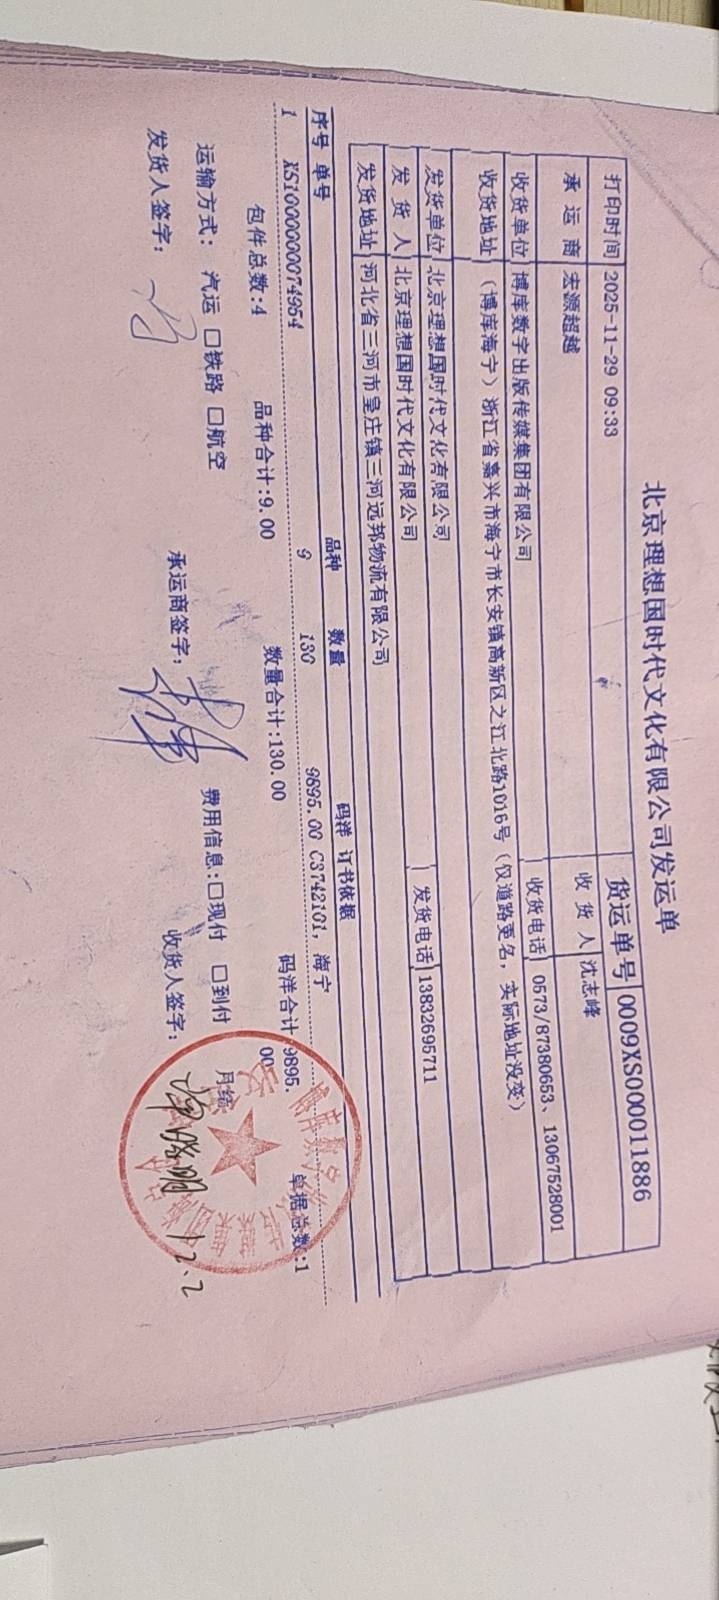 北京理想国时代文化有限公司发运单
打印时间 2025-11-29 09:33 货运单号 0009XS000011886
承运商 宏源超越 收货人 沈志峰
收货单位 博库数字出版传媒集团有限公司 收货电话 0573/87380653、13067528001
收货地址 (博库海宁)浙江省嘉兴市海宁市长安镇高新区之江北路1016号(仅道路更名,实际地址没变)
发货单位 北京理想国时代文化有限公司
发货人 北京理想国时代文化有限公司 发货电话 13832695711
发货地址 河北省三河市皇庄镇三河远邦物流有限公司
序号 单号 品种 数量 码洋 订书依据
1 XS1000000074954 9 130 9895.00 C3742101, 海宁
包件总数:4 品种合计:9.00 数量合计:130.00 码洋合计 9895.00 单据总数:1
运输方式: 汽运 □铁路 □航空 费用信息:□现付 □到付 月结
发货人签字: 承运商签字: 收货人签字:
12.2